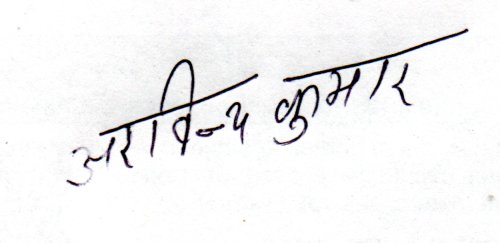 अरविन्द कुमार